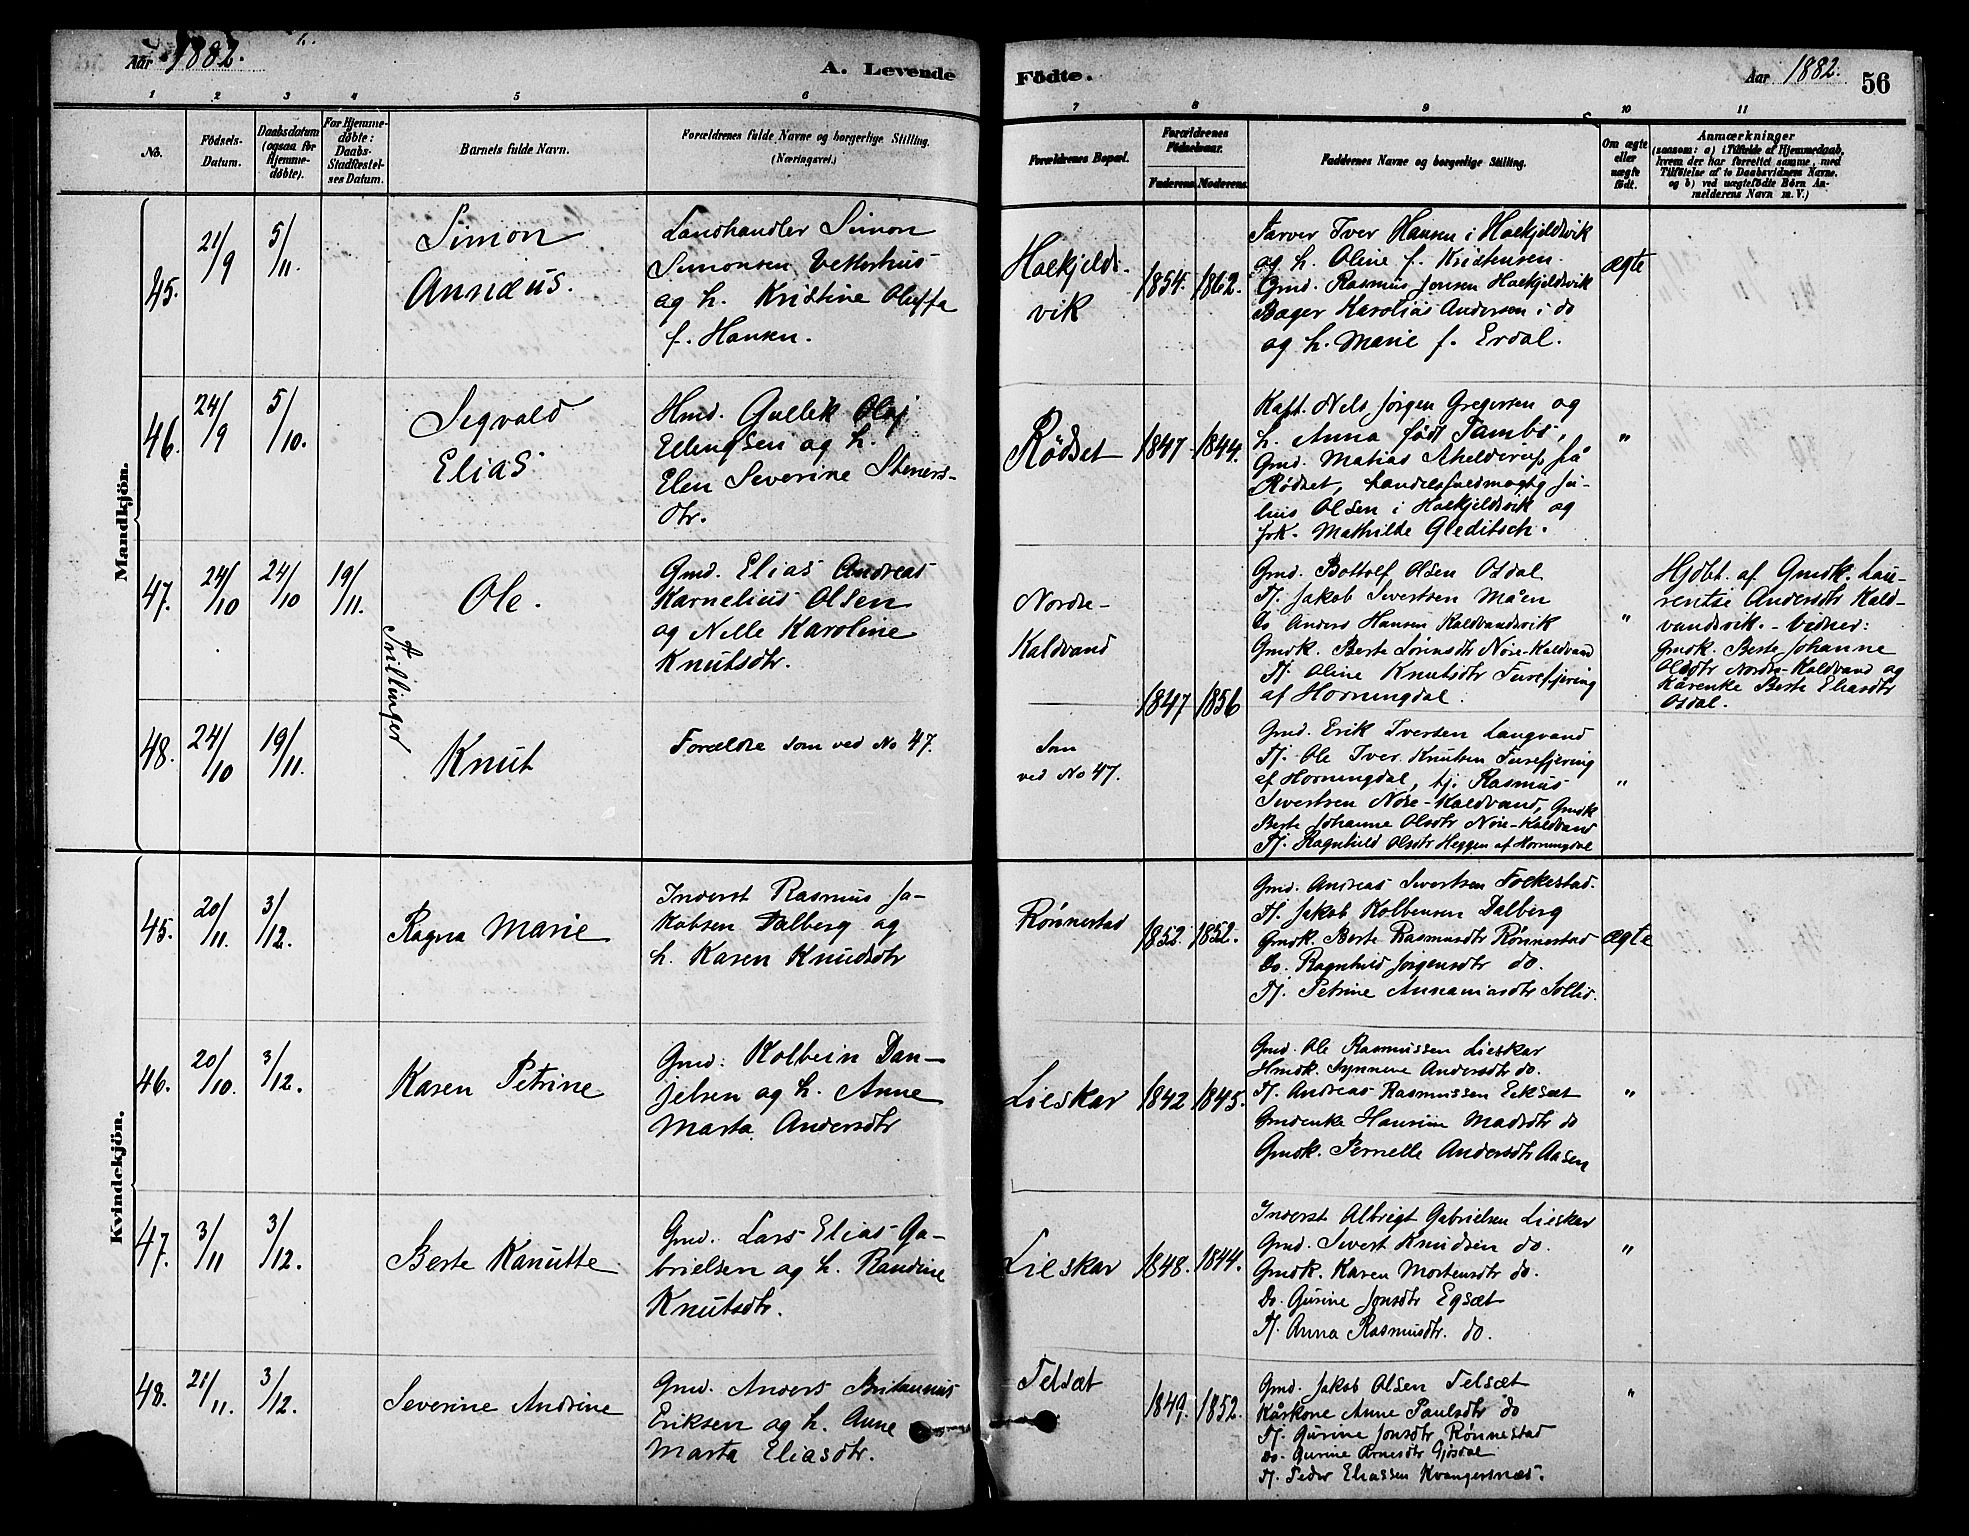 Aar 1882.
A. Levende
Fødte.
Aar 1882.
56
1 2 3 4 5 6 7 8 9 10 11
No.
Fødsels-
Datum.
Daabsdatum
(ogsaa for
Hjemme-
døbte).
For Hjemme-
døbte:
Daabs-
Stadfæstel-
ses Datum.
Barnets fulde Navn.
Forældrenes fulde Navne og borgerlige Stilling.
(Næringsvei.)
Forældrenes Bopæl.
Forældrenes
Fødselsaar.
Faderens. Moderens.
Faddernes Navne og borgerlige Stilling.
Om ægte
eller
uægte
født.
Anmærkninger
(saasom: a) i Tilfælde af Hjemmedaab,
hvem der har forrettet samme, med
Tilføielse af to Daabsvidners Navne.
og b) ved uægtefødte Børn An-
melderens Navn m. V.)
Mandkjön.
45.
21/9
5/11.
Simon
Annæus.
Landhandler Simon
Simonsen
og h. Kristine Oluffa
f. Hansen.
Haekjelds-
vik
1854. 1862.
Farver Iver Hansen i Haekjeldsvik
og h. Oline f. Kristensen.
Gmd. Rasmus Jonsen Haekjeldsvik
Bager Karolius Andersen i do
og h. Marie f. Erdal.
ægte
46.
24/9
5/10.
Sigvald
Elias
Hmd. Gullik Olaj
Ellingsen og h.
Elen Severine Steners-
dtr.
Rødset
1847 1844.
Kapt. Nels Jørgen Gregersen og
h. Anna født Tambs,
Gmd. Matias Ahelderup på
Rødset, handelsfuldmægtig Ju-
lius Olsen i Haekjeldsvik og
frk. Mathilde Gleditsch.
"
47.
24/10
24/10
19/11.
Ole.
Trillinger
Gmd. Elias Andreas
Karnelius Olsen
og Nille Karoline
Knutsdtr.
Nordre-
Kaldvand
1847 1856
Gmd. Bottolf Olsen Osdal
Tj. Jakob Sivertsen Måen
do Anders Hansen Kaldvandsvik
Gmdk. Berte Sørinsdtr Nore-Kaldvand
Tj. Oline Knutsdtr Turefjering
af Horningdal.
"
Hjdbt. af Gmdk. Lau-
rentse Andersdtr Kald-
vandsvik. - Vidner:
Gmdk. Berte Johanne
Olsdtr Nordre-Kaldvand og
Kårenke Berte Eliasdtr
Osdal.
48.
24/10
19/11.
Knut
Forældre som ved No 47.
Som
ved No 47.
Gmd. Erik Iversen Langvand
Tj. Ole Iver Knutsen Turefjering
af Horningdal, tj. Rasmus
Sivertsen Nore-Kaldvand, Gmdk
Berte Johanne Olsdtr Nore-Kaldvand
Tj. Ragnhild Olsdtr Heggen af Horningdal
"
Kvindekjön.
45.
20/11.
3/12.
Ragna Marie
Inderst Rasmus Ja-
kobsen Dalberg og
h. Karen Knudsdtr
Rönnestad
1852. 1852.
Gmd. Andreas Sivertsen Folkestad.
Tj. Jakob Kolbensen Dalberg
Gmdk. Berte Rasmusdtr Rönnestad
Do. Ragnhild Jørgensdtr do.
Tj. Petrine Annaniasdtr Sollid.
ægte
46.
20/10.
3/12.
Karen Petrine
Gmd. Kolbein Dan-
jelsen og h. Anne
Marta Andersdtr
Lieskar
1842 1845.
Gmd. Ole Rasmussen Lieskar
Hmdk. Synneve Andersdtr do.
Tj. Andreas Rasmussen Eiksæt
Gmdenke Hansine Madsdtr do
Gmdk. Pernelle Andersdtr Aasen
"
47.
3/11
3/12.
Berte Kanutte
Gmd. Lars Elias Ga-
brielsen og h. Randine
Knutsdtr.
Lieskar
1848. 1844.
Inderst Albrigt Gabrielsen Lieskar
Gmd. Sivert Knudsen do.
Gmdk. Karen Mortensdtr do.
Do. Gurine Jonsdtr Egsæt
Tj. Anna Rasmusdtr. do.
"
48.
21/11.
3/12.
Severine Andrine
Gmd. Anders Britannus
Eriksen og h. Anne
Marta Eliasdtr.
Felsæt
1849. 1852.
Gmd. Jakob Olsen Felsæt
Kårkone Anne Paulsdtr do
Tj. Gurine Jonsdtr Rönnestad
Do. Gurine Arnesdtr Gjøsdal
Tj. Peder Eliassen Kvangersnæs.
"